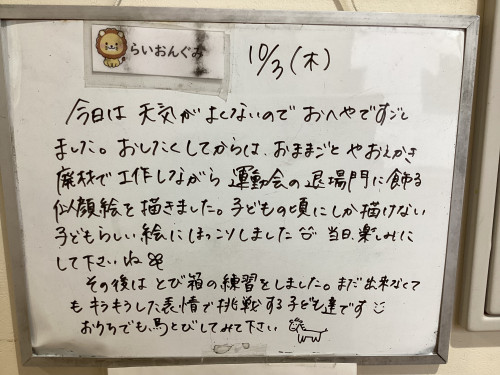 らいおんぐみ
10/3(木)
今日は天気がよくないのでおへやですごし
ました。おしたくしてからは、おままごとやおえかき
廃材で工作しながら運動会の退場門に飾る
似顔絵を描きました。子どもの頃にしか描けない
子どもらしい絵にほっこりしました 当日、楽しみに
して下さいね
その後はとび箱の練習をしました。まだ出来なくて
もキラキラした表情で挑戦する子ども達です
おうちでも、馬とびしてみて下さい